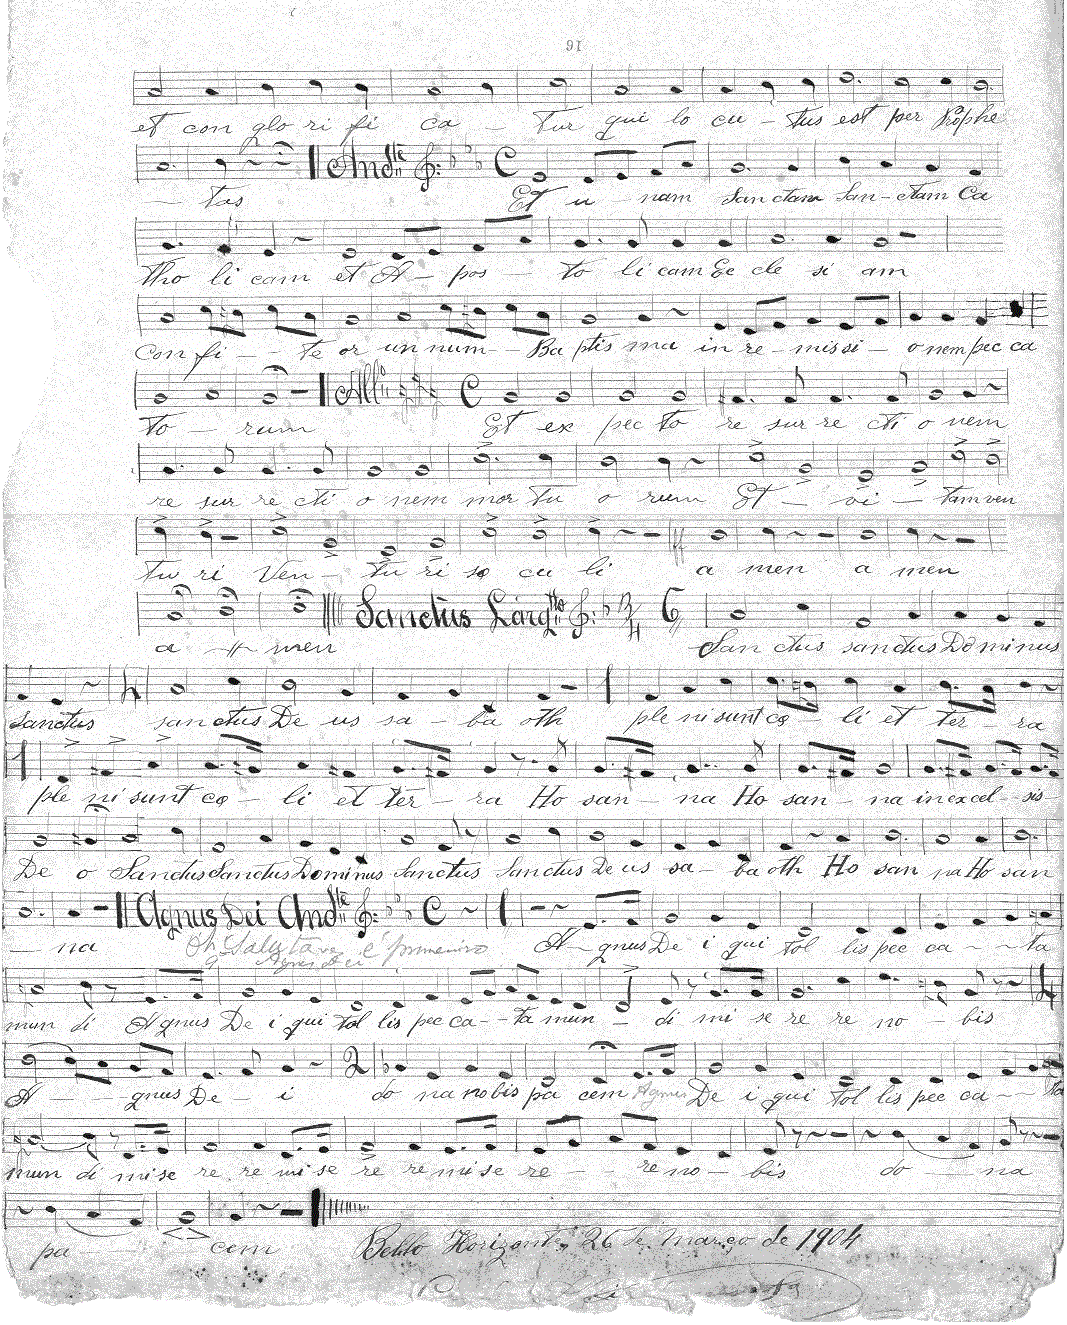 16
et con glo ri fi ca - tur qui lo cu - tus est per Prophe
- tas Andte C Et u - nam Sanctam San - ctam Ca
tho li cam et A - pos - to li cam Ec cle si am
Con fi - - te or un num - - Ba ptis ma in re - missi - o nem pec ca
to - rum Allo C Et ex pec to re sur re cti o nem
re sur re cti o nem mor tu o rum Et - vi - tam ven
tu ri Ven - tu ri so cu li a men a men
a - men Sanctus Largtto 6 San ctus sanctus Dominus
Sanctus sanctus De us sa - ba oth ple ni sunt cọ - li et ter - ra
ple ni sunt cọ - li et ter - ra Ho san - na Ho san - na in excel - sis
De o Sanctus Sanctus Dominus Sanctus Sanctus De us sa - ba oth Ho san na Ho san
- na Agnus Dei Andte C A - gnus De i qui tol lis pec ca - - ta
Oh Salutaris é primeiro
Agnus Dei
mun di A gnus De i qui tol lis pec ca - - ta mun - di mi se re re no - bis
A - - - gnus De - i 2 do na nobis pa cem Agnus De i qui tol lis pec ca - - ta
mun di mi se re re mi se re re mi se re - - re no - bis do - na
pa cem Bello Horizonte, 26 de março de 1904